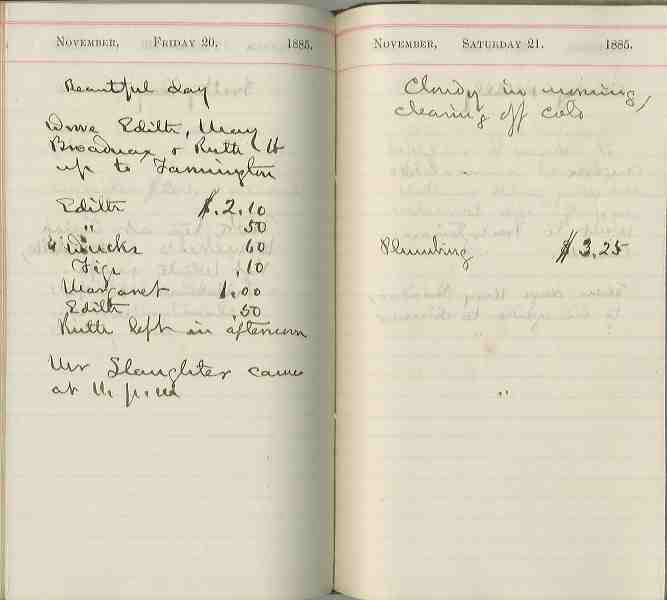 November, Friday 20. 1885.
Beautiful day
Drove Edith, May
Broadnax & Ruth H
up to Farmington
Edith $.2.10
" .50
4 Ducks 60
Figs .10
Margaret 1.00
Edith .50
Ruth left in afternoon
Mr Slaughter came
at 11. p.m
November, Saturday 21. 1885.
Cloudy in morning,
clearing off cold
Plumbing $3.25